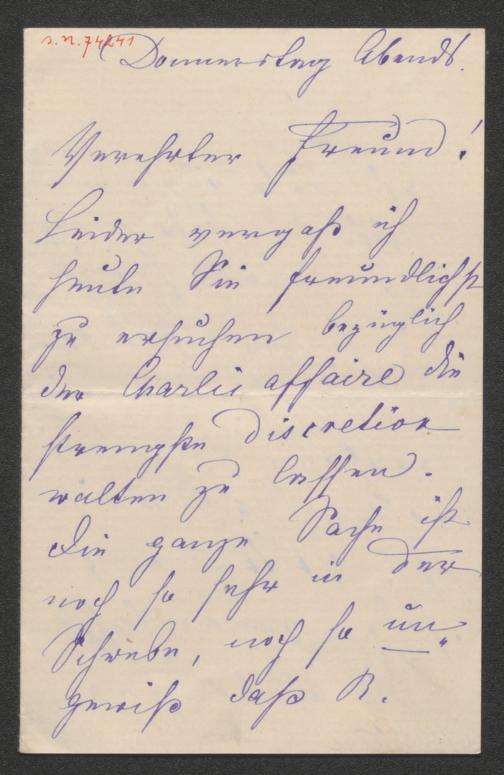 s.n. 74241
Donnerstag Abends.
Verehrter Freund!
Leider vergaß ich
heute Sie freundlichst
zu ersuchen bezüglich
der Charlie affaire die
strengste Discretion
walten zu lassen.
Die ganze Sache ist
noch so sehr in der
Schwebe, noch so un„
gewiß daß R.